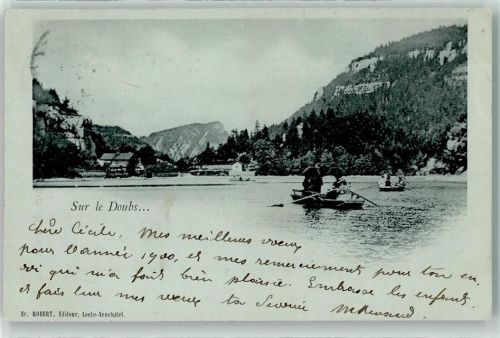 Sur le Doubs...
Chère Cécile, Mes meilleurs vœux
pour l'année 1900, et mes remerciements pour ton en,
voi qui m'a fait bien plaisir. Embrasse les enfants
et fais leur mes vœux ta
Er. ROBERT, Editeur, Locle-Neuchâtel.